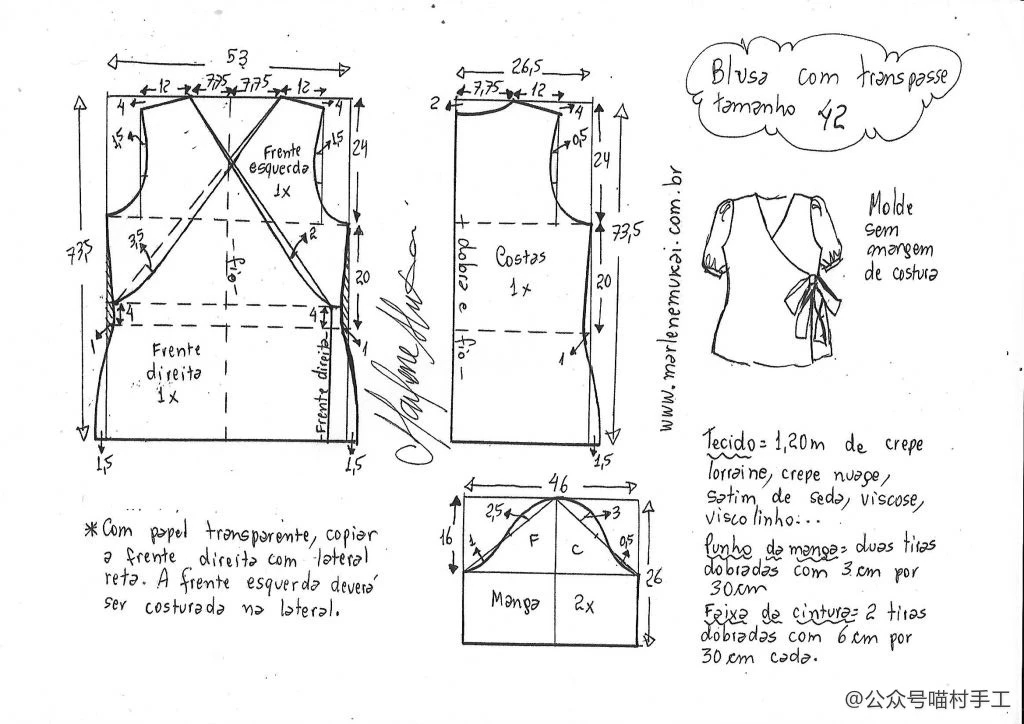 Blusa com transpasse
tamanho 42
53
12 7,75 7,75 12
4
4
1,5
1,5
Frente
esquerda
1x
24
73,5
3,5
2
fio
20
4
4
1
1
Frente
direita
1x
Frente direita
1,5
1,5
26,5
7,75 12
2
4
0,5
24
73,5
dobra e fio
Costas
1x
20
1
1,5
www.marlenemukai.com.br
Molde
sem
margem
de costura
46
16
2,5
3
1
0,5
F
C
26
Manga 2x
*Com papel transparente, copiar
a frente direita com lateral
reta. A frente esquerda deverá
ser costurada na lateral.
Tecido= 1,20m de crepe
lorraine, crepe nuage,
satim de seda, viscose,
viscolinho...
Punho da manga= duas tiras
dobradas com 3 cm por
30cm
Faixa da cintura= 2 tiras
dobradas com 6 cm por
30 cm cada.
@公众号喵村手工